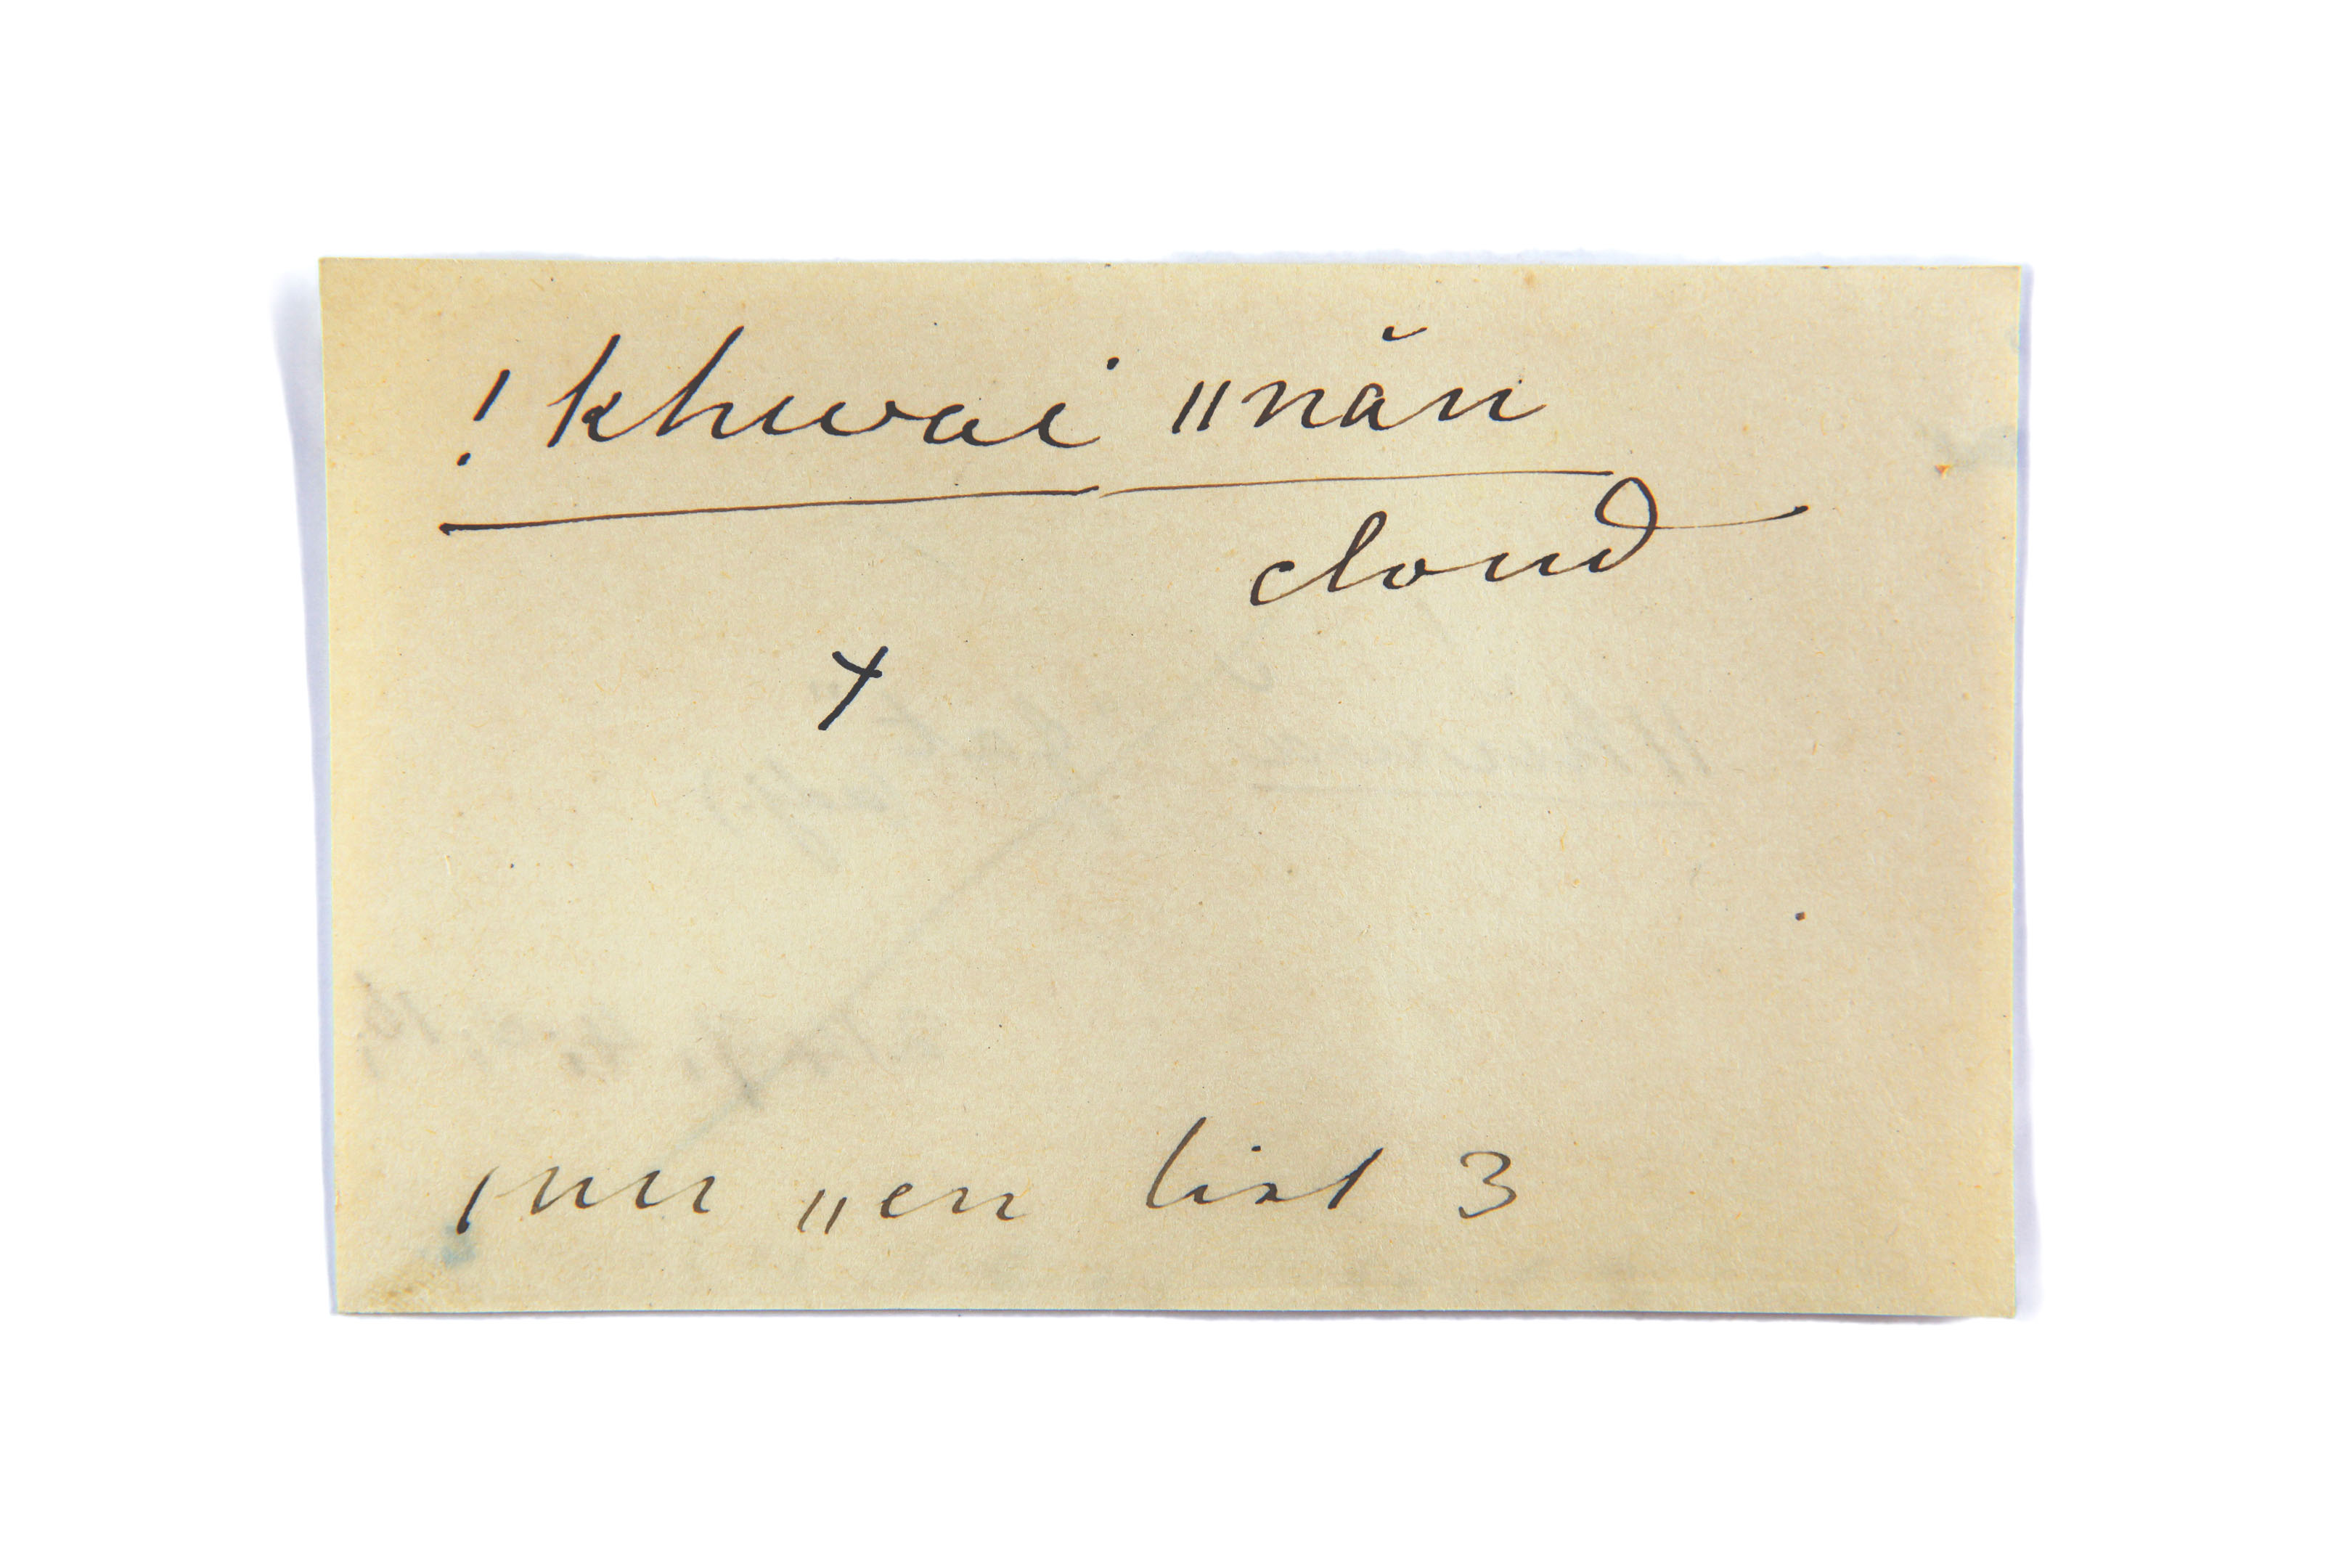 !khwai ǁnăn
cloud
x
ǀnu ǁen list 3